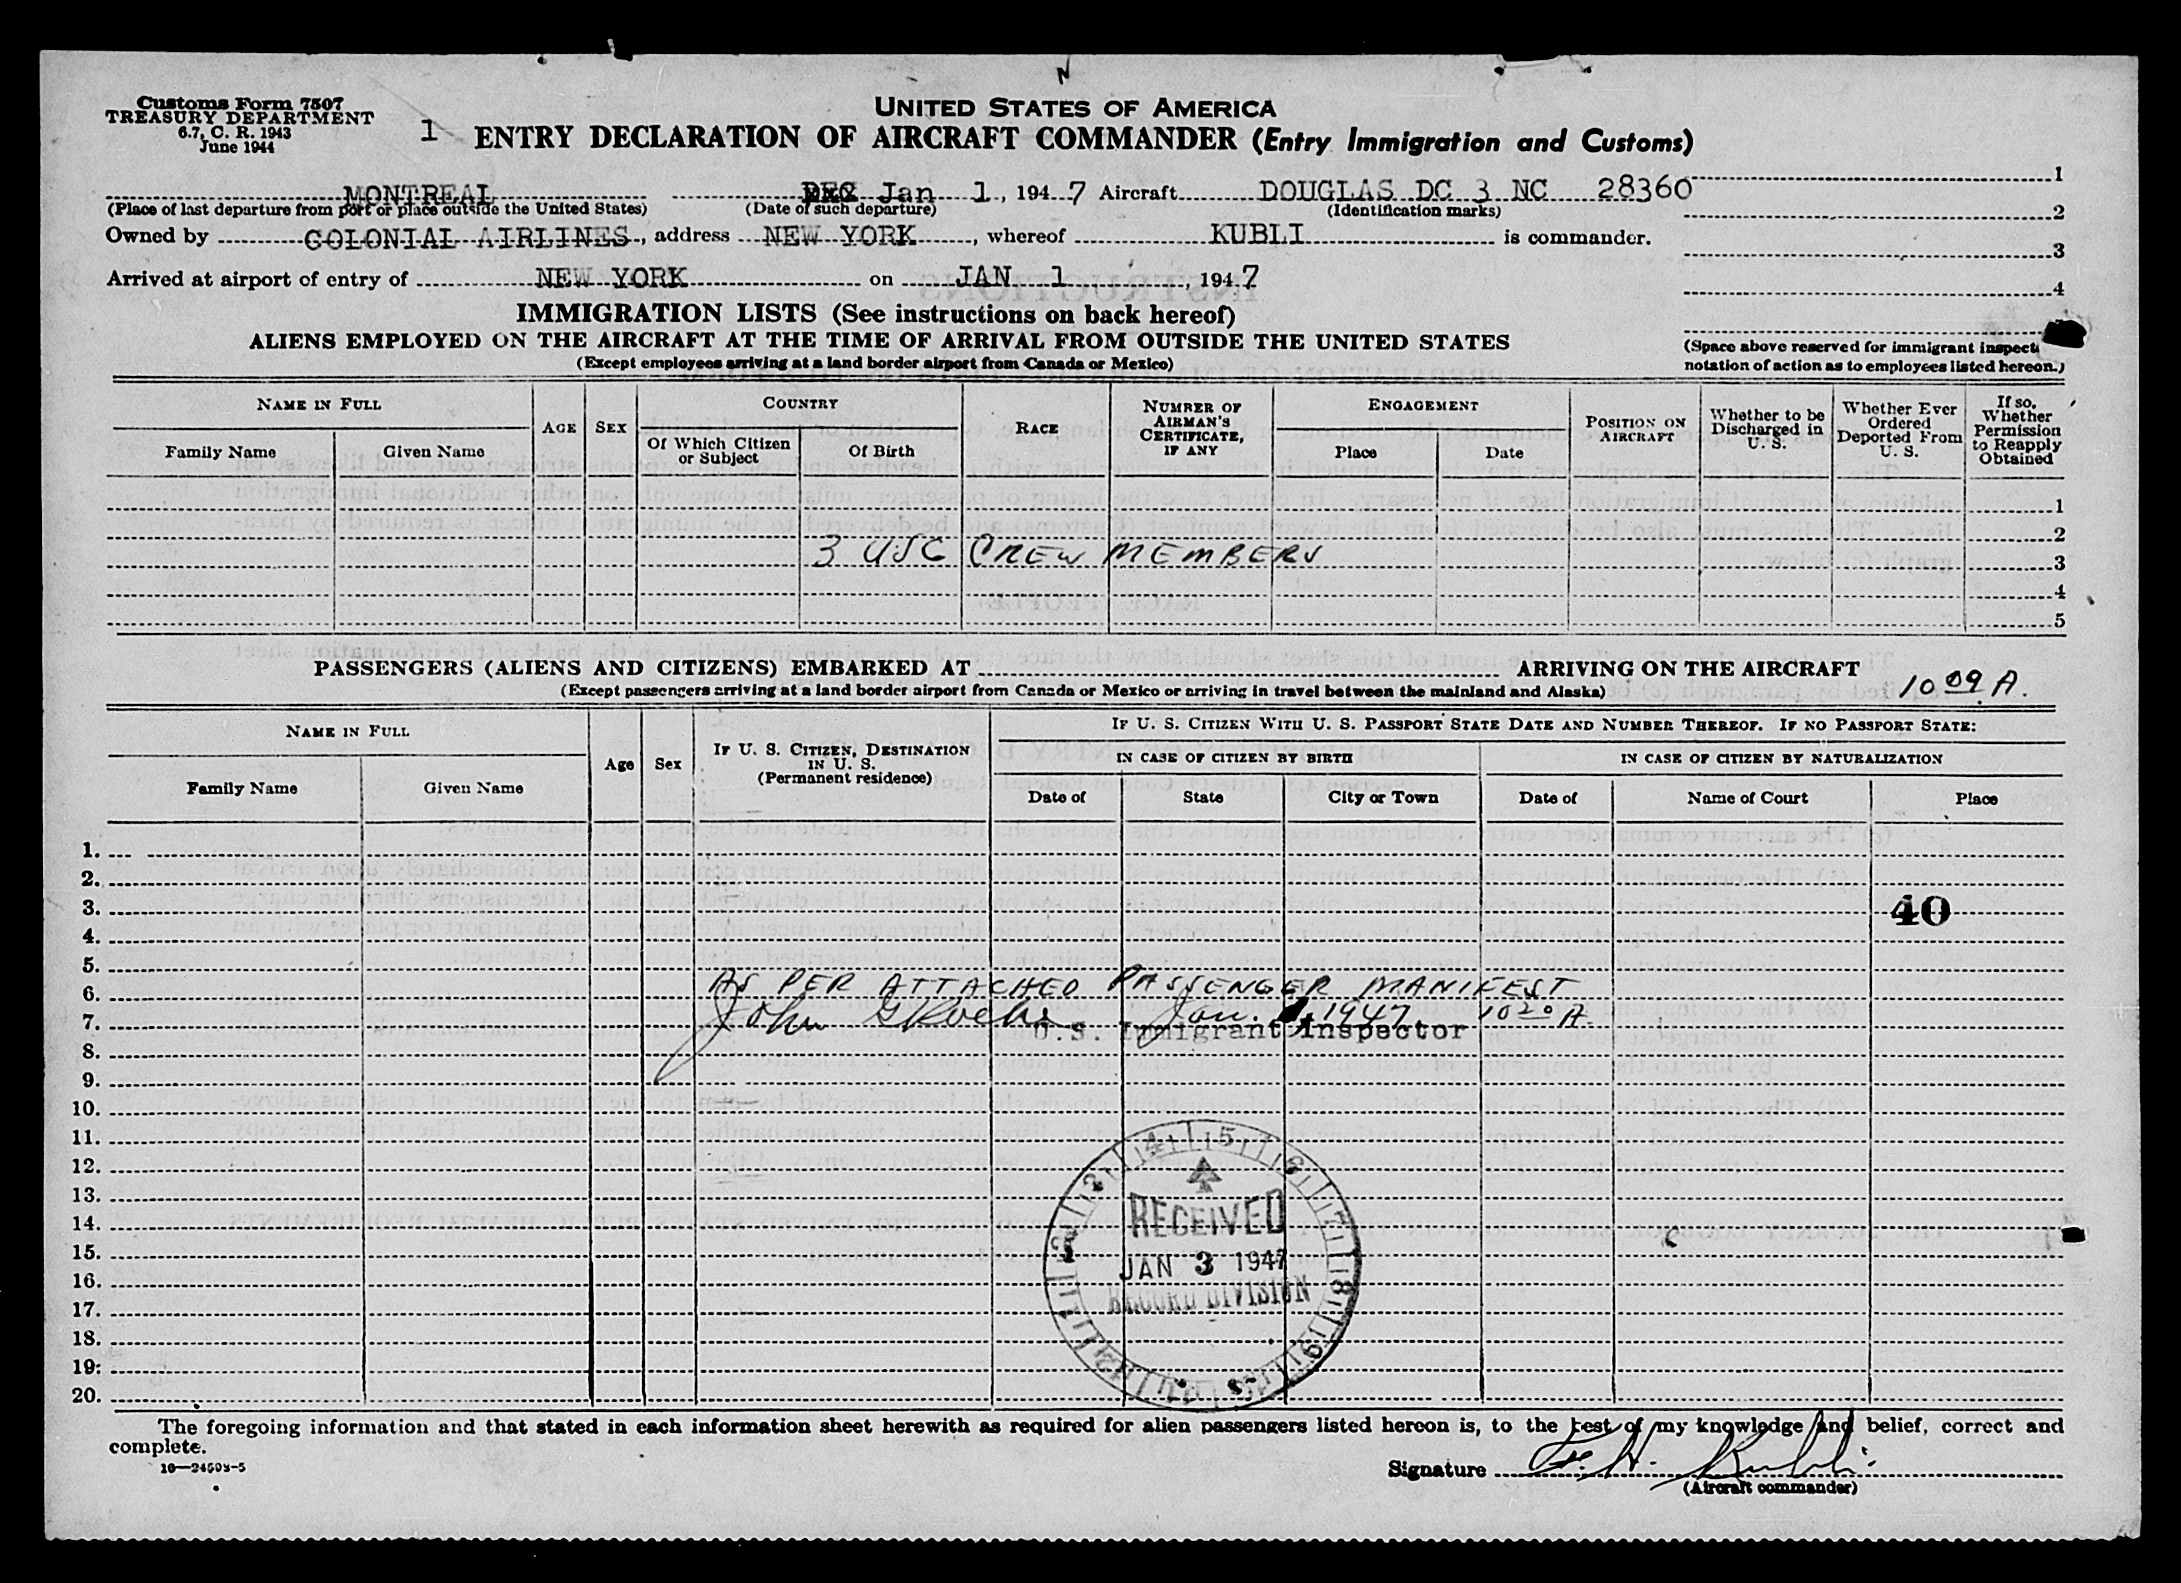 Customs Form 7507
TREASURY DEPARTMENT
6.7, C. R. 1943
June 1944
UNITED STATES OF AMERICA
1 ENTRY DECLARATION OF AIRCRAFT COMMANDER (Entry Immigration and Customs)
MONTREAL DEC Jan 1, 1947 Aircraft DOUGLAS DC 3 NC 28360
(Place of last departure from port or place outside the United States) (Date of such departure) (Identification marks)
Owned by COLONIAL AIRLINES, address NEW YORK, whereof KUBLI is commander.
Arrived at airport of entry of NEW YORK on JAN 1, 1947
1
2
3
4
(Space above reserved for immigrant
notation of action as to employees listed hereon.)
IMMIGRATION LISTS (See instructions on back hereof)
ALIENS EMPLOYED ON THE AIRCRAFT AT THE TIME OF ARRIVAL FROM OUTSIDE THE UNITED STATES
(Except employees arriving at a land border airport from Canada or Mexico)
NAME IN FULL
Family Name
Given Name
AGE
SEX
COUNTRY
Of Which Citizen or Subject
Of Birth
RACE
NUMBER OF AIRMAN'S CERTIFICATE, IF ANY
ENGAGEMENT
Place
Date
POSITION ON AIRCRAFT
Whether to be Discharged in U. S.
Whether Ever Ordered Deported From U. S.
If so, Whether Permission to Reapply Obtained
1
2
3 USC CREW MEMBERS 3
4
5
PASSENGERS (ALIENS AND CITIZENS) EMBARKED AT ARRIVING ON THE AIRCRAFT 10 09 A.
(Except passengers arriving at a land border airport from Canada or Mexico or arriving in travel between the mainland and Alaska)
NAME IN FULL
Family Name
Given Name
Age
Sex
IF U. S. CITIZEN, DESTINATION IN U. S.
(Permanent residence)
IF U. S. CITIZEN WITH U. S. PASSPORT STATE DATE AND NUMBER THEREOF. IF NO PASSPORT STATE:
IN CASE OF CITIZEN BY BIRTH
Date of
State
City or Town
IN CASE OF CITIZEN BY NATURALIZATION
Date of
Name of Court
Place
1.
2.
3. 40
4.
5.
6. AS PER ATTACHED PASSENGER MANIFEST
7. John Jan. 1947 10 20 A.
U.S. Immigrant Inspector
8.
9.
10.
11.
12.
13.
14.
15.
16.
17.
18.
19.
20.
RECEIVED
JAN 3 1947
RECORD DIVISION
The foregoing information and that stated in each information sheet herewith as required for alien passengers listed hereon is, to the best of my knowledge and belief, correct and
complete.
Signature F. H. Kubli
(Aircraft commander)